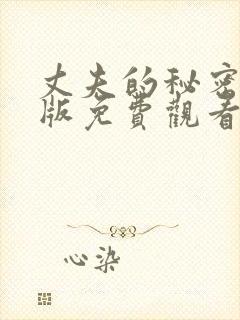 丈夫的秘密
版免費觀看
心染